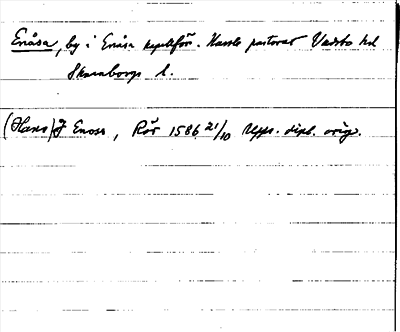 Enåsa, by i Enåsa kapellför. Hassle pastorat Vadsbo hd
Skaraborgs l.
(Hans) J Enosa, Rör 1586 21/10 Upps. dipl. orig.